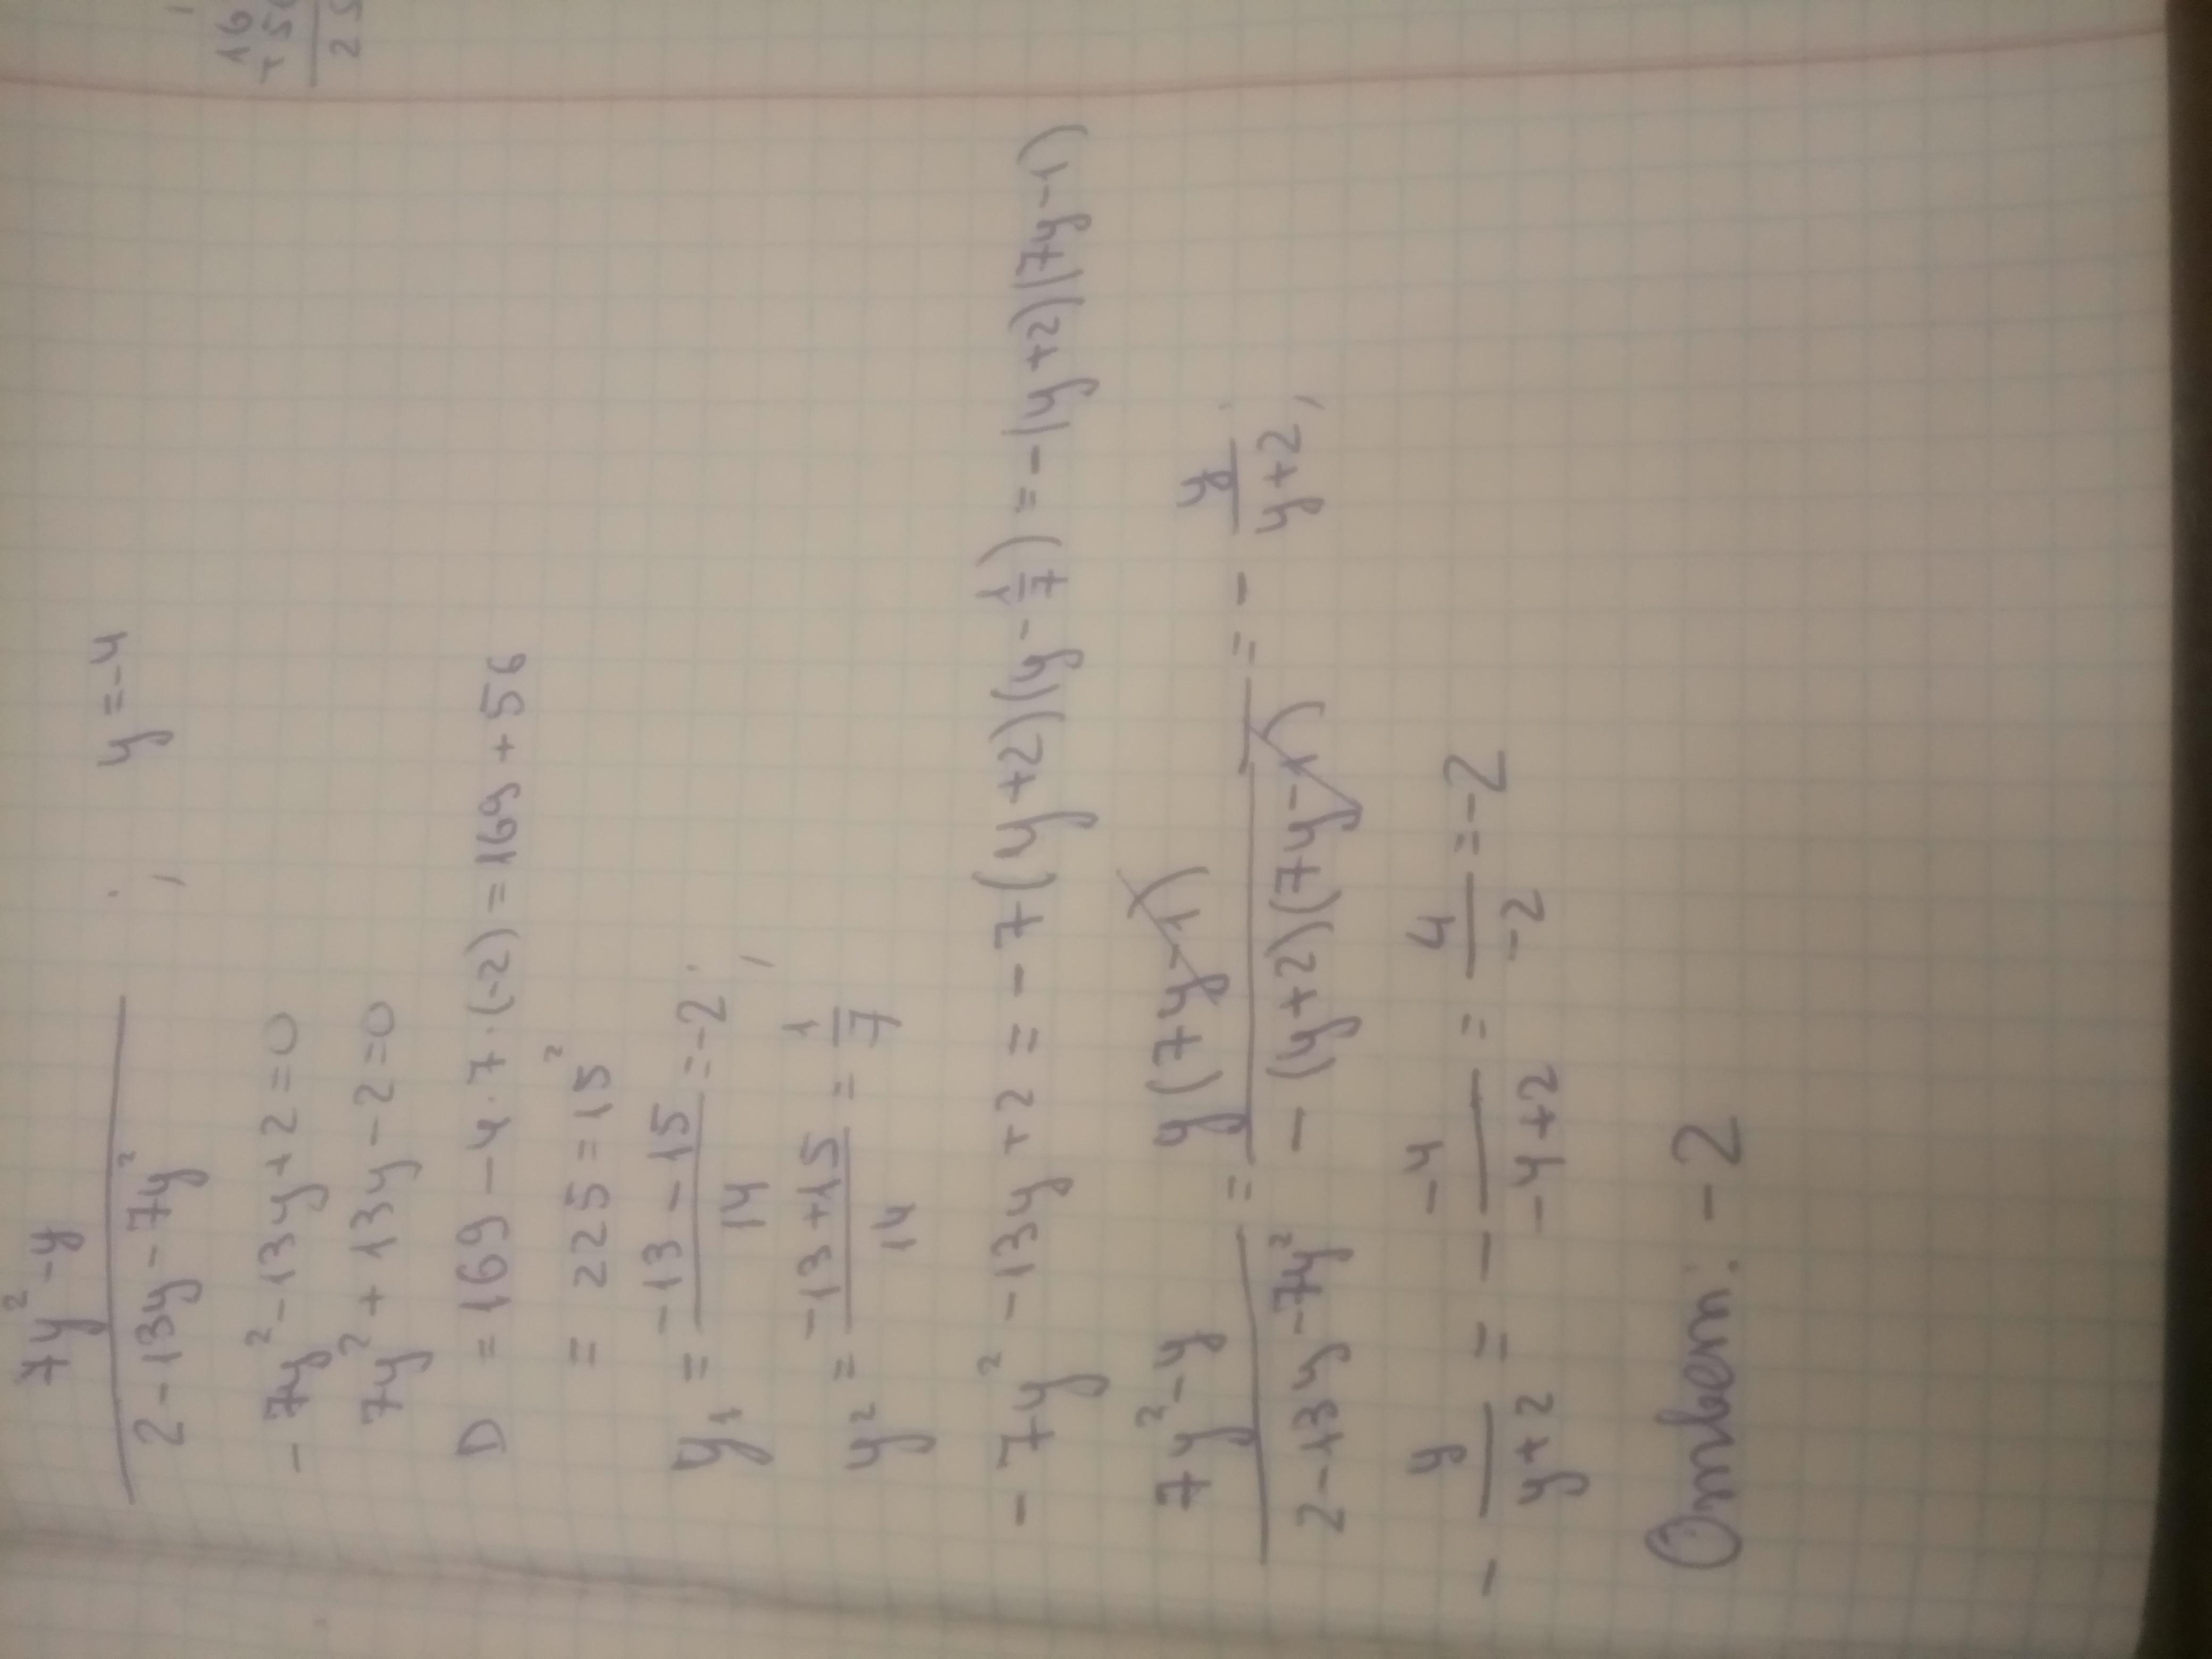 16
+ 5
2 5
(7y² - y)/(2 - 13y - 7y²) ; y = -4
-7y² - 13y + 2 = 0
7y² + 13y - 2 = 0
D = 169 - 4 · 7 · (-2) = 169 + 56
= 225 = 15²
y₁ = (-13 - 15)/14 = -2 ;
y² = (-13 + 15)/14 = 1/7
-7y² - 13y + 2 = -7(y + 2)(y - 1/7) = -(y + 2)(7y - 1)
(7y² - y)/(2 - 13y - 7y²) = y(7y - 1)/(-(y + 2)(7y - 1)) = - y/(y + 2) ;
- y/(y + 2) = - (-4)/(-4 + 2) = 4/(-2) = -2
Ответ: -2